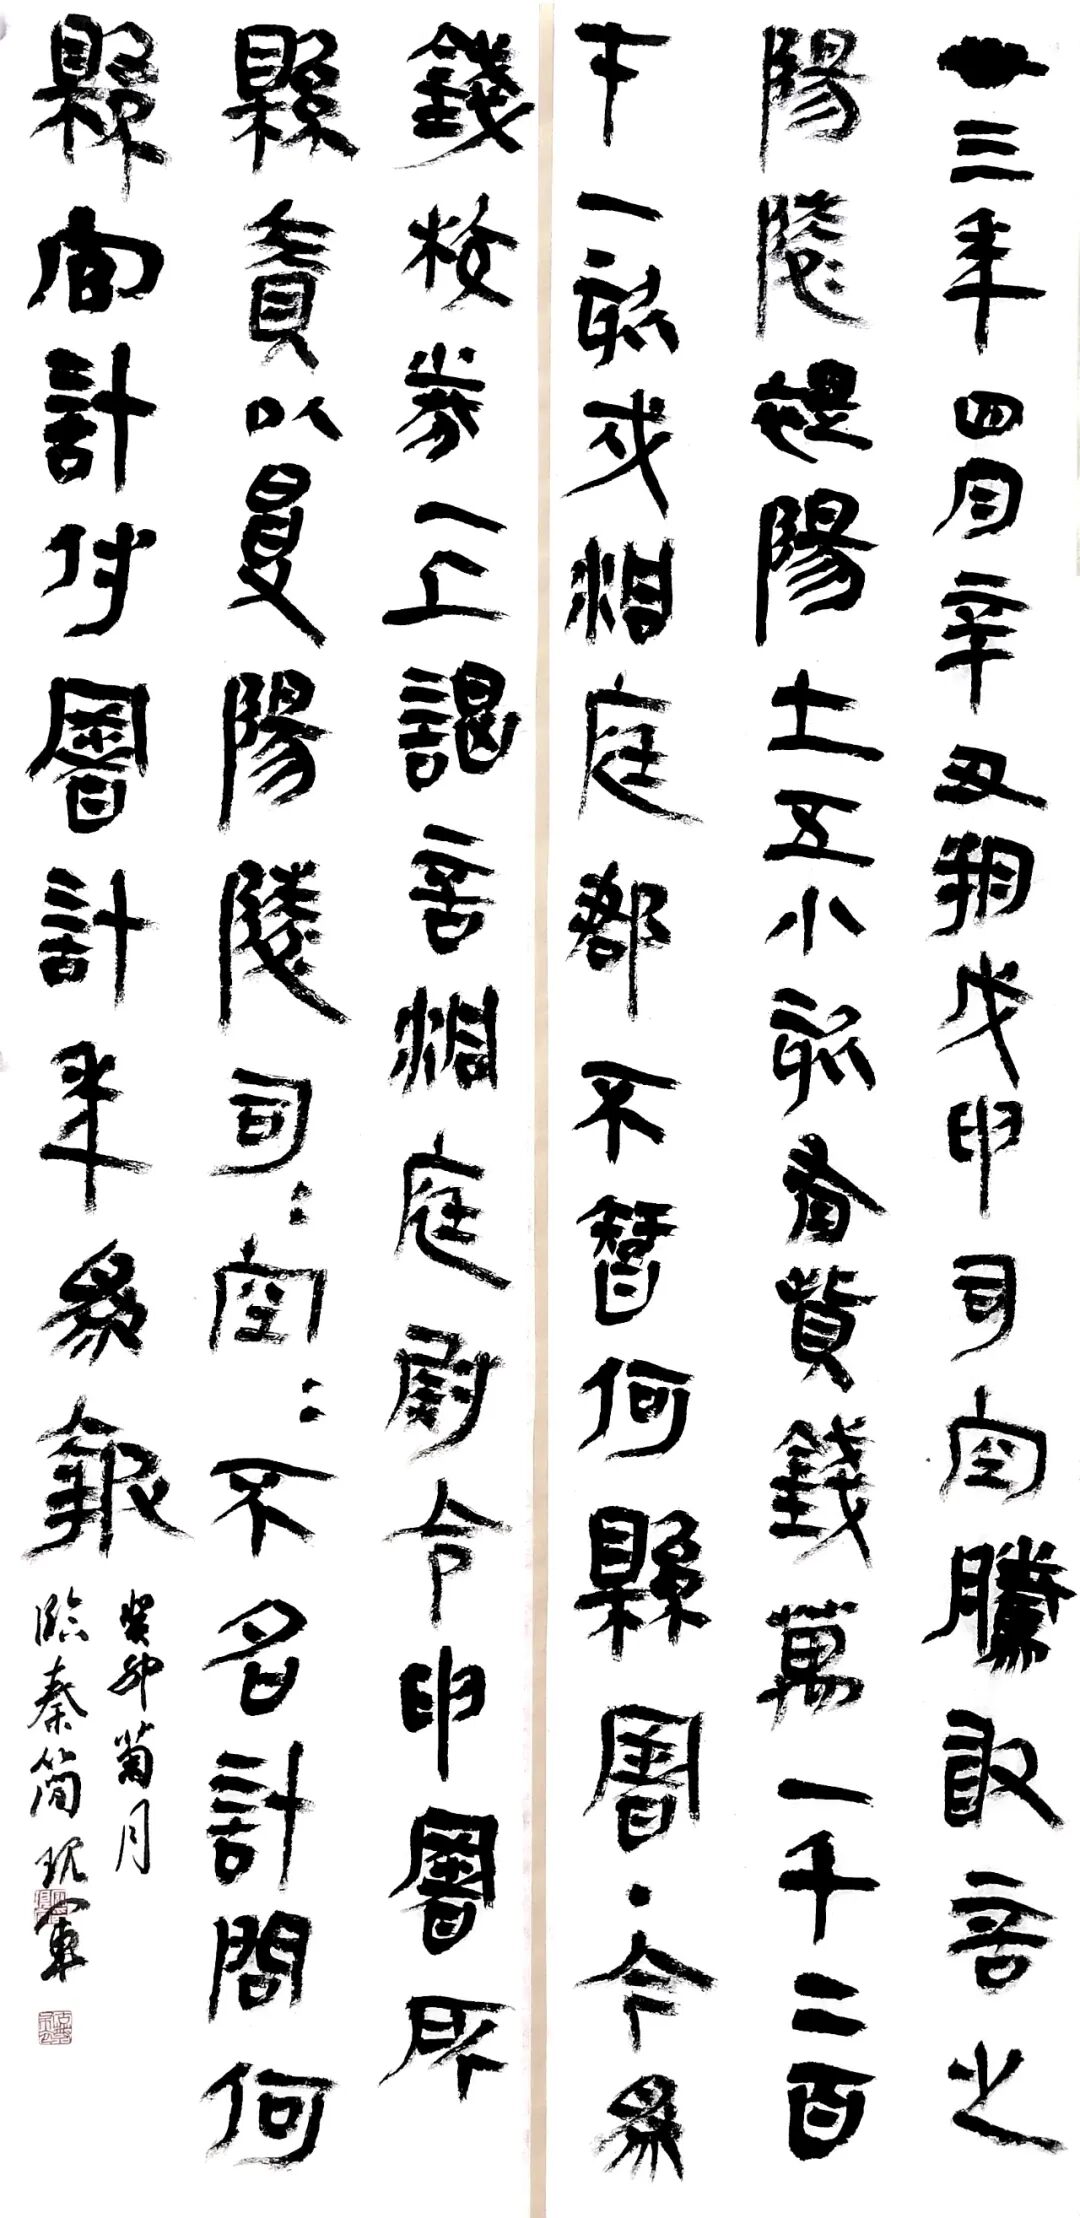 卅三年四月辛丑朔戊申司空騰敢言之
陽陵褆陽士五小欬有貲錢萬一千二百
七十一欬戍洞庭郡不智何縣署·今為
錢校券一上謁言洞庭尉令申署所
縣責以受陽陵司〓空〓不名計問何
縣官計付署計年為報
癸卯菊月
臨秦简